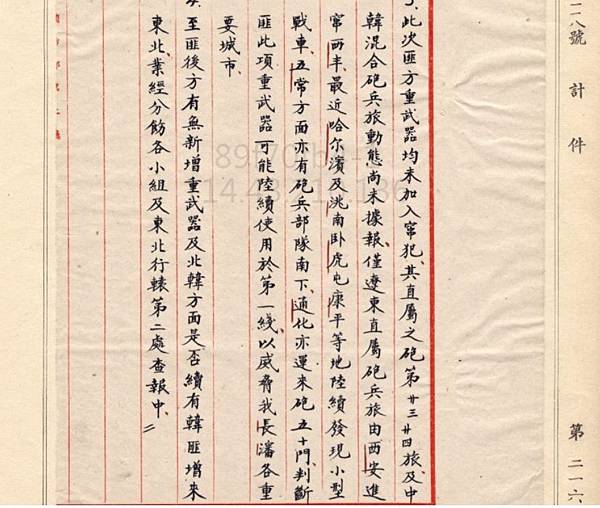 二八號 計 件 第 二一六
此次匪方重武器均未加入竄犯、其直屬之砲第廿三廿四旅及中
韓混合砲兵旅動態尚未據報、僅遼東直屬砲兵旅由西安進
窜西丰、最近哈尔濱及洮南卧虎屯康平等地陸續發現小型
戰車、五常方面亦有砲兵部隊南下、通化亦運來砲五十門、判斷
匪此項重武器可能陸續使用於第一綫、以威脅我長瀋各重
要城市、
4、至匪後方有無新增重武器及北韓方面是否續有韓匪增來
東北、業經分飭各小組及東北行轅第二處查報中、